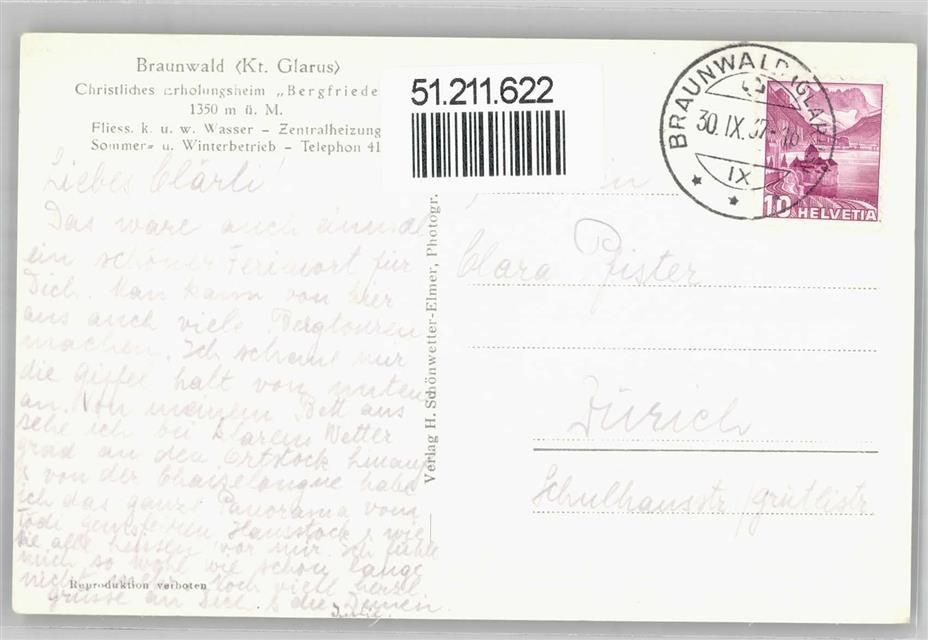 Braunwald (Kt. Glarus)
Christliches Erholungsheim „Bergfriede
1350 m ü. M.
Fliess. k. u. w. Wasser – Zentralheizung
Sommer- u. Winterbetrieb – Telephon 41
51.211.622
BRAUNWALD (GLARUS)
30. IX. 37
IX
10 HELVETIA
Liebes Clärli!
Das wäre auch einmal
ein schöner Ferienort für
Dich. Man kann von hier
aus auch viele Bergtouren
machen. Ich schaue mir
die Gipfel halt von unten
an. Von meinem Bett aus
sehe ich bei klarem Wetter
grad an den Ortstock hinauf
& von der Chaiselongue habe
ich das ganze Panorama vom
Tödi, Hausstock & wie
sie alle heissen vor mir. Ich fühle
mich so wohl wie schon lange
nicht mehr. Noch viele herzl.
Grüsse an Dich & die Deinen.
Reproduktion verboten
Verlag H. Schönwetter-Elmer, Photogr.
Clara Pfister
Zürich
Schulhausstr/grütlistr